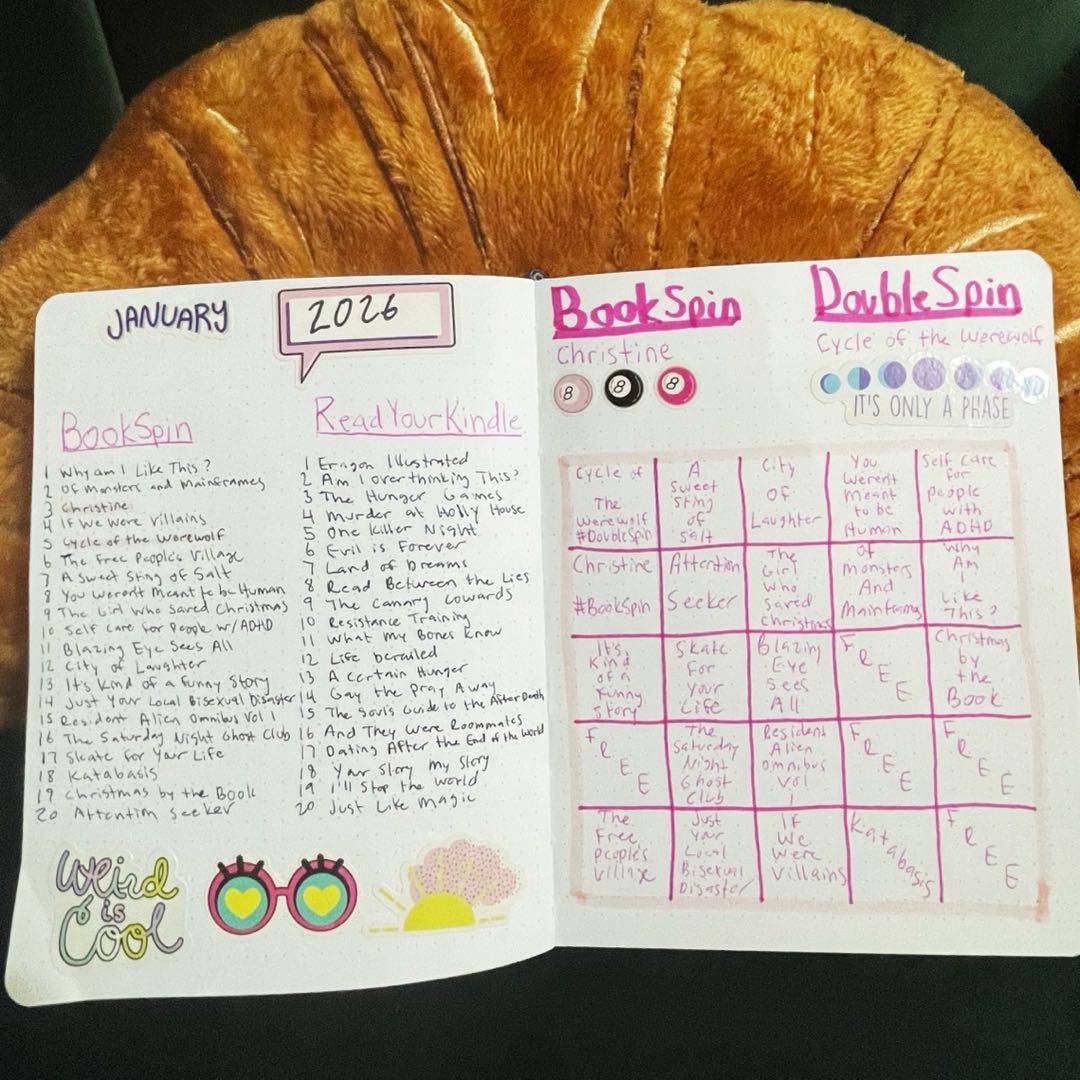 JANUARY
2026
BookSpin
1 Why am I Like This?
2 Of Monsters and Mainframes
3 Christine
4 If We Were Villains
5 Cycle of the Werewolf
6 The Free People's Village
7 A Sweet Sting of Salt
8 You Weren't Meant to be Human
9 The Girl Who Saved Christmas
10 Self Care for People w/ ADHD
11 Blazing Eye Sees All
12 City of Laughter
13 It's Kind of a Funny Story
14 Just Your Local Bisexual Disaster
15 Resident Alien Omnibus Vol 1
16 The Saturday Night Ghost Club
17 Skate for Your Life
18 Katabasis
19 Christmas by the Book
20 Attention Seeker
ReadYourKindle
1 Eragon Illustrated
2 Am I overthinking This?
3 The Hunger Games
4 Murder at Holly House
5 One Killer Night
6 Evil is Forever
7 Land of Dreams
8 Read Between the Lies
9 The Canary Cowards
10 Resistance Training
11 What my Bones Know
12 Life derailed
13 A Certain Hunger
14 Gay the Pray Away
15 The Soul's Guide to the After Death
16 And They Were Roommates
17 Dating After the End of the World
18 Your Story My Story
19 I'll Stop the World
20 Just Like Magic
Weird
is
Cool
BookSpin
Christine
8 8 8
DoubleSpin
Cycle of the Werewolf
IT'S ONLY A PHASE
Cycle of
The
Werewolf
#DoubleSpin
A
Sweet
Sting
of
Salt
City
Of
Laughter
You
Weren't
meant
to be
Human
Self Care
for
People
with
ADHD
Christine
#BookSpin
Attention
Seeker
The
Girl
Who
Saved
Christmas
Of
Monsters
And
Mainframes
Why
Am
I
Like
This?
It's
Kind
of a
Funny
Story
Skate
For
Your
Life
Blazing
Eye
Sees
All
FREE
Christmas
by
the
Book
FREE
The
Saturday
Night
Ghost
Club
Resident
Alien
Omnibus
Vol
1
FREE
FREE
The
Free
People's
Village
Just
Your
Local
Bisexual
Disaster
If
We
Were
Villains
Katabasis
FREE